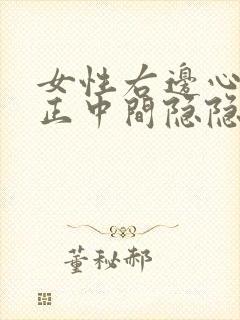 女性右邊心
正中間隐隐
董秘郝